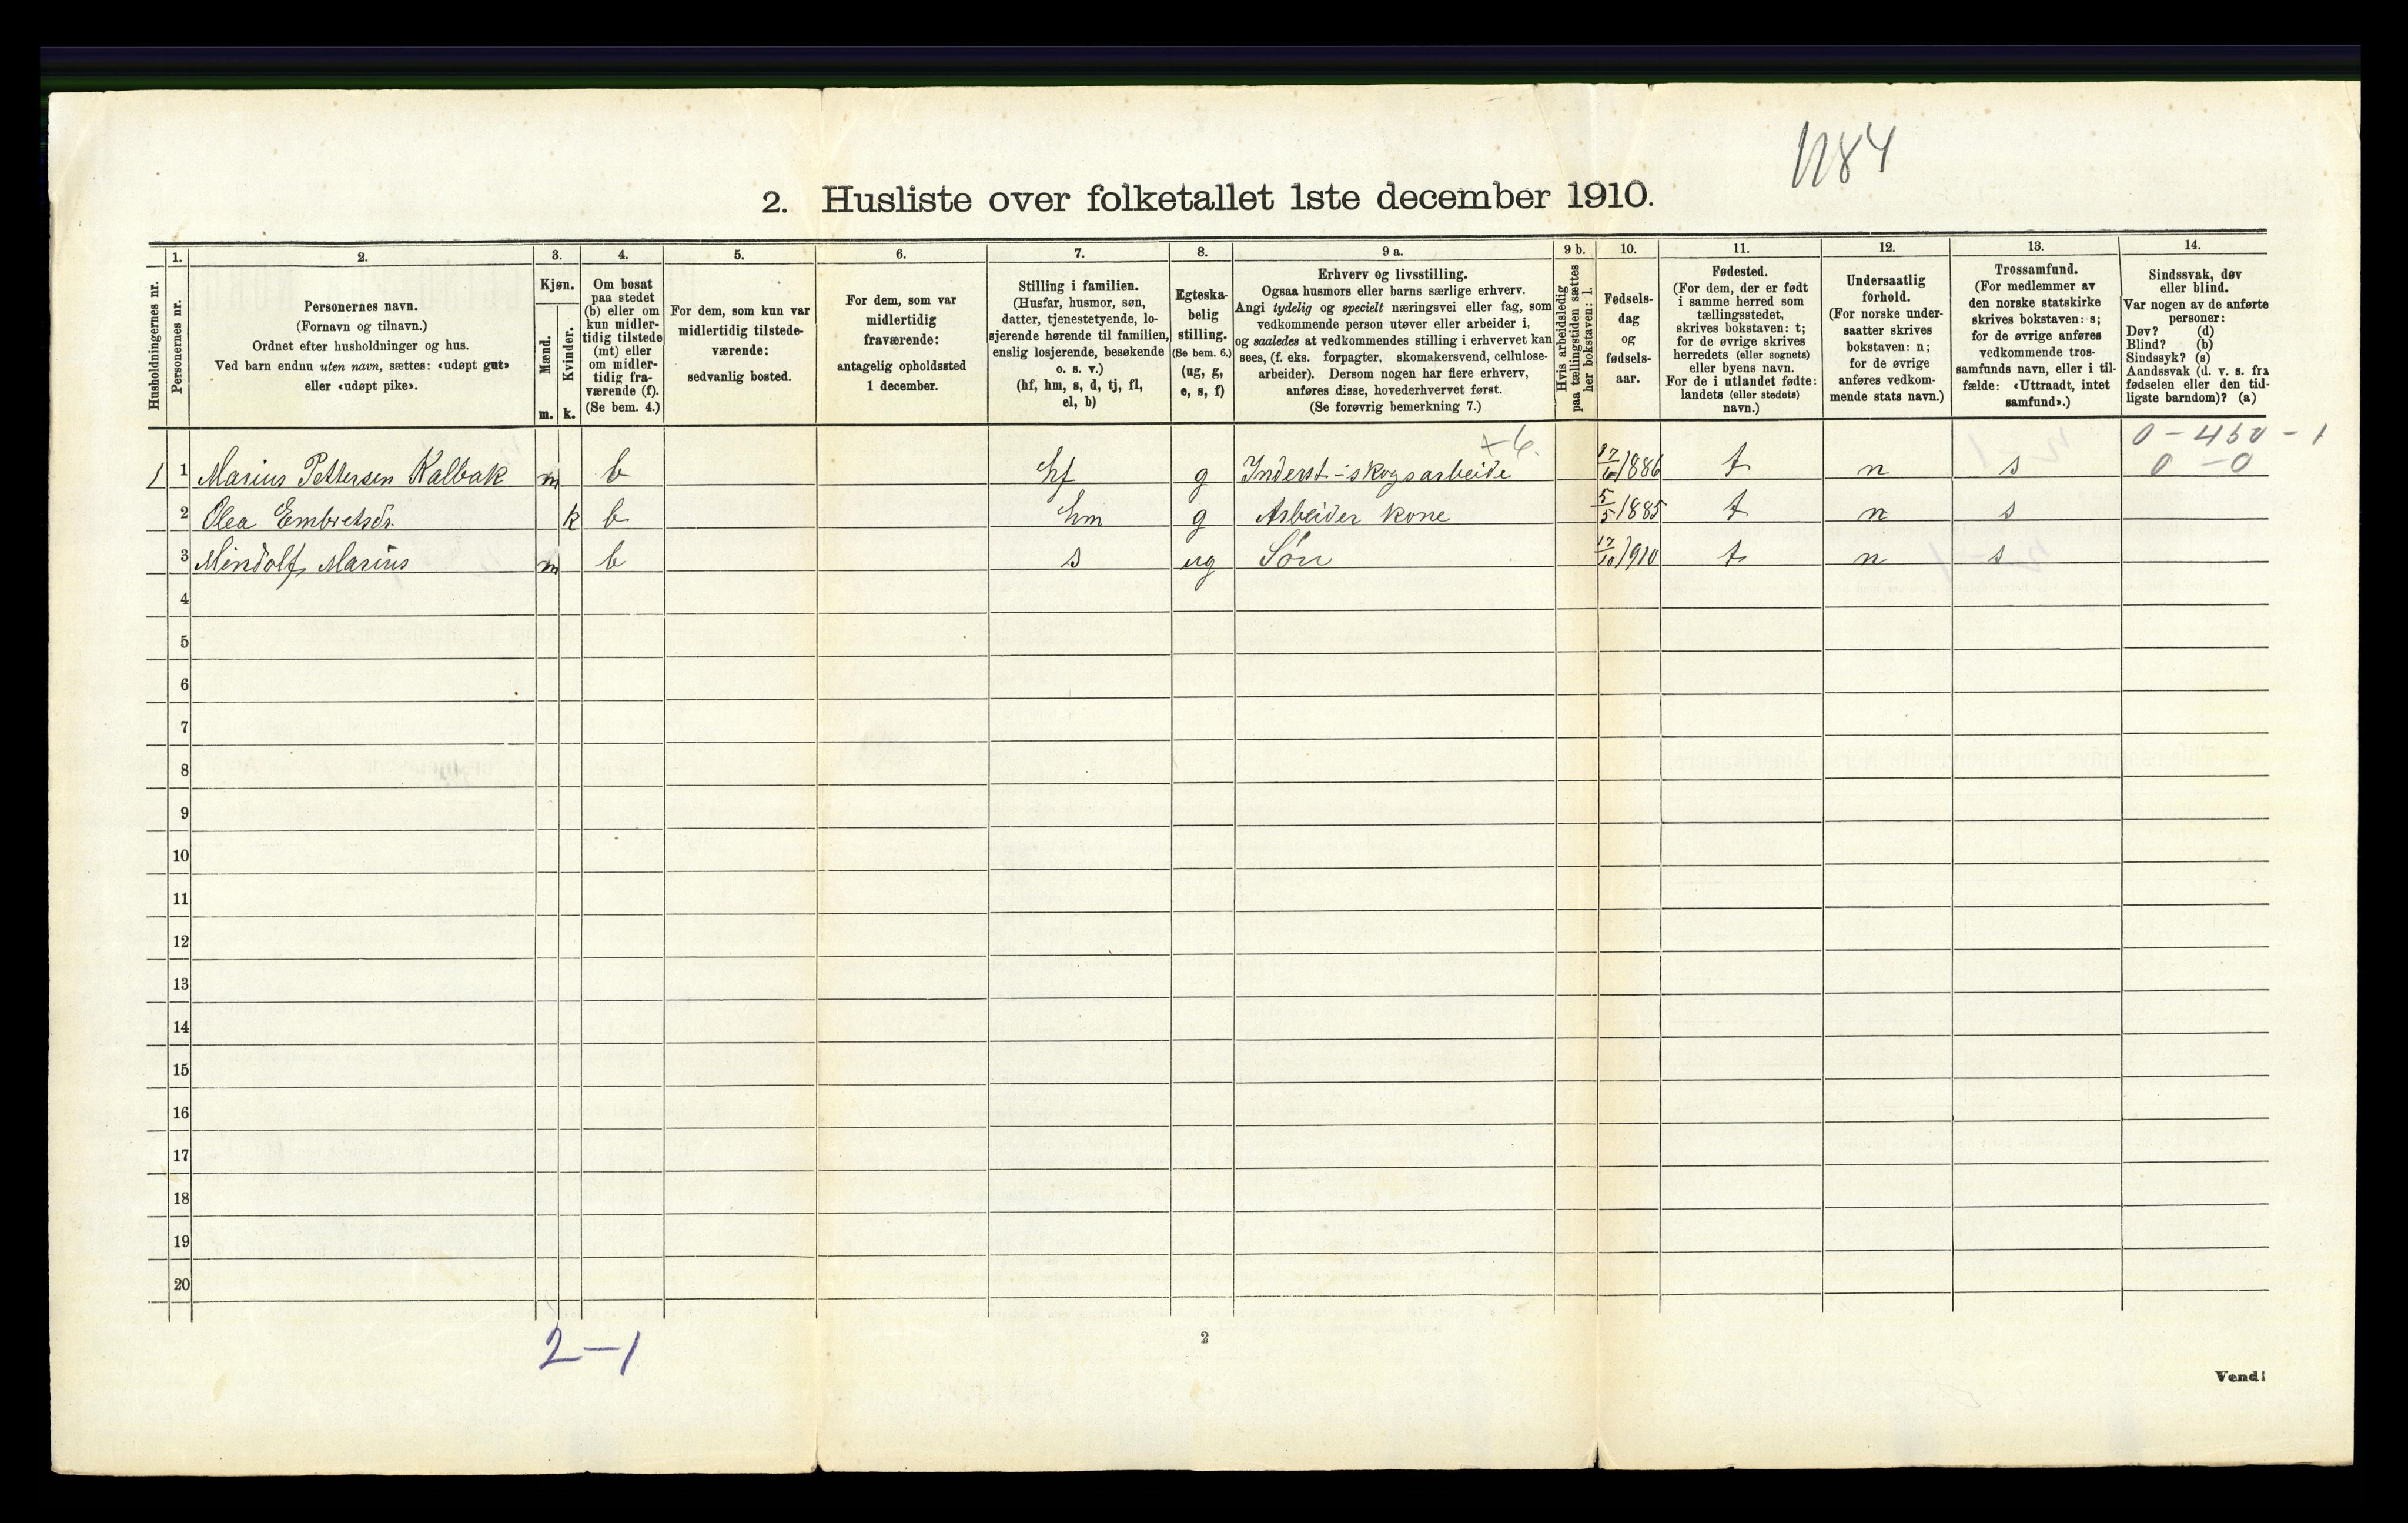 1184
2. Husliste over folketallet 1ste december 1910.
1. 2. 3. 4. 5. 6. 7. 8. 9 a. 9 b. 10. 11. 12. 13. 14.
Husholdningernes nr.
Personernes nr.
Personernes navn.
(Fornavn og tilnavn.)
Ordnet efter husholdninger og hus.
Ved barn endnu uten navn, sættes: «udøpt gut»
eller «udøpt pike».
Kjøn.
Mænd.
m.
Kvinder.
k.
Om bosat
paa stedet
(b) eller om
kun midler-
tidig tilstede
(mt) eller
om midler-
tidig fra-
værende (f).
(Se bem. 4.)
For dem, som kun var
midlertidig tilstede-
værende:
sedvanlig bosted.
For dem, som var
midlertidig
fraværende:
antagelig opholdssted
1 december.
Stilling i familien.
(Husfar, husmor, søn,
datter, tjenestetyende, lo-
sjerende hørende til familien,
enslig losjerende, besøkende
o. s. v.)
(hf, hm, s, d, tj, fl,
el, b)
Egteska-
belig
stilling.
(Se bem. 6.)
(ug, g,
e, s, f)
Erhverv og livsstilling.
Ogsaa husmors eller barns særlige erhverv.
Angi tydelig og specielt næringsvei eller fag, som
vedkommende person utøver eller arbeider i,
og saaledes at vedkommendes stilling i erhvervet kan
sees, (f. eks. forpagter, skomakersvend, cellulose-
arbeider). Dersom nogen har flere erhverv,
anføres disse, hovederhvervet først.
(Se forøvrig bemerkning 7.)
Hvis arbeidsledig
paa tællingstiden sættes
her bokstaven: l.
Fødsels-
dag
og
fødsels-
aar.
Fødested.
(For dem, der er født
i samme herred som
tællingsstedet,
skrives bokstaven: t;
for de øvrige skrives
herredets (eller sognets)
eller byens navn.
For de i utlandet fødte:
landets (eller stedets)
navn.)
Undersaatlig
forhold.
(For norske under-
saatter skrives
bokstaven: n;
for de øvrige
anføres vedkom-
mende stats navn.)
Trossamfund.
(For medlemmer av
den norske statskirke
skrives bokstaven: s;
for de øvrige anføres
vedkommende tros-
samfunds navn, eller i til-
fælde: «Uttraadt, intet
samfund».)
Sindssvak, døv
eller blind.
Var nogen av de anførte
personer:
Døv? (d)
Blind? (b)
Sindssyk? (s)
Aandssvak (d. v. s. fra
fødselen eller den tid-
ligste barndom)? (a)
+6. 0-450-1
1 1 Marius Pettersen Kalbak m b hf g Inderst-skogsarbeide 1886 t n s 0-0
2 Olea Embretsdr. k b hm g Arbeider kone 5/5 1885 t n s
3 Mindolf Marius m b s ug Søn 17/10 1910 t n s
4
5
6
7
8
9
10
11
12
13
14
15
16
17
18
19
20
2-1
2
Vend!